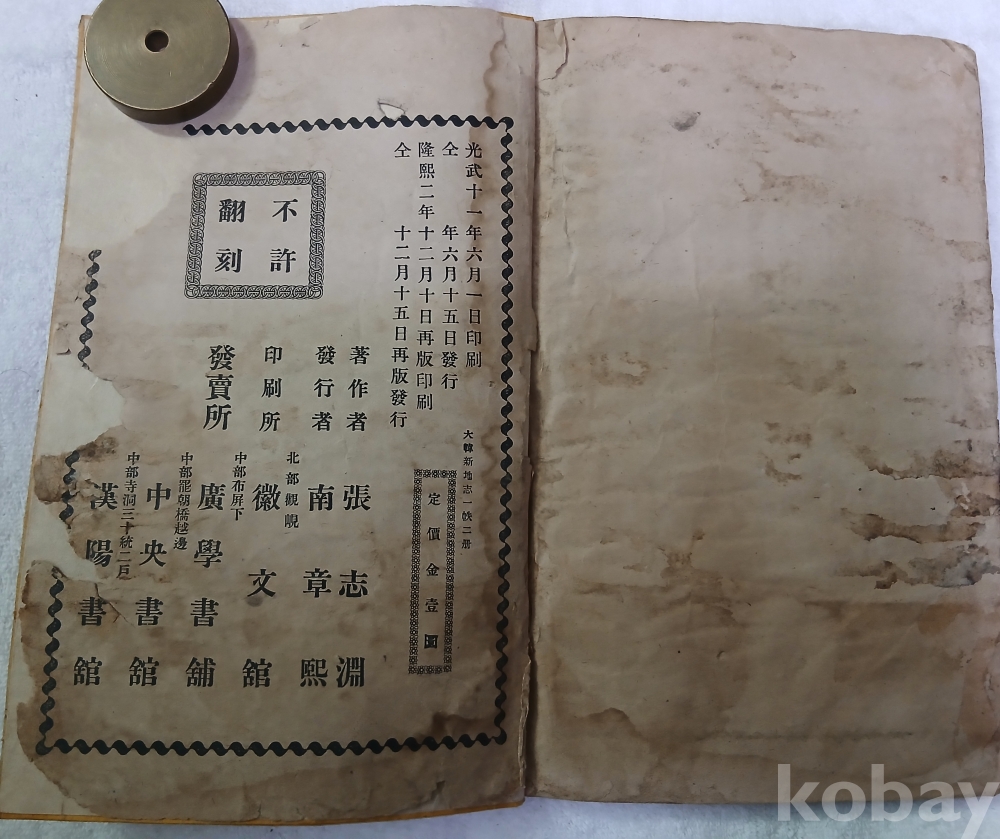 光武十一年六月一日印刷
仝　　　年六月十五日發行
隆熙二年十二月十日再版印刷
仝　　　十二月十五日再版發行
不許
翻刻
大韓新地志一帙二册
定價金壹圜
著作者　張志淵
發行者　南章熙
北部觀峴
印刷所　徽文舘
發賣所
中部布屏下
廣學書舖
中部罷朝橋越邊
中央書舘
中部寺洞三十統二戶
漢陽書舘
kobay